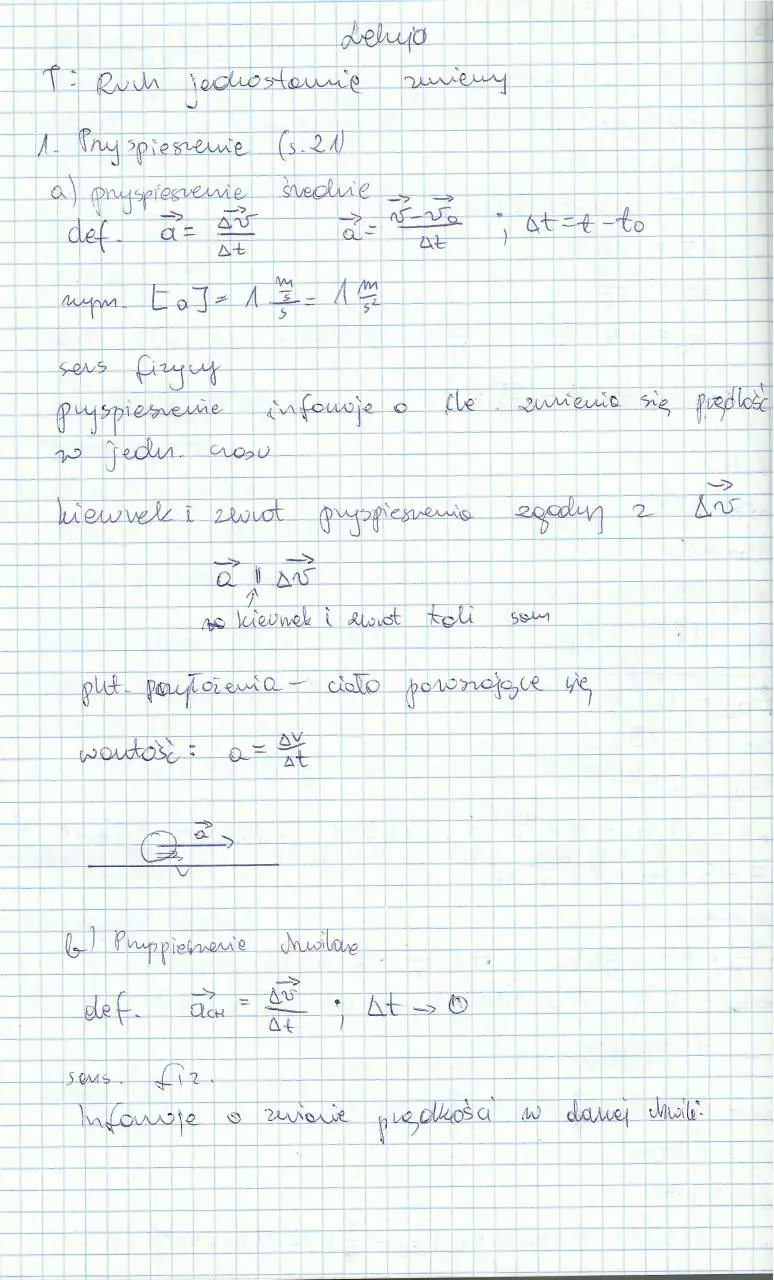 Lekcja
T: Ruch jednostajnie zmienny
1. Przyspieszenie (s.21)
a) przyspieszenie średnie
def. a⃗ = Δv⃗/Δt a⃗ = (v⃗ - v⃗₀)/Δt ; Δt = t - t₀
wym. [a] = 1 (m/s)/s = 1 m/s²
sens fizyczny
przyspieszenie informuje o ile zmienia się prędkość
w jedn. czasu
kierunek i zwrot przyspieszenia zgodny z Δv⃗
a⃗ || Δv⃗
↑
kierunek i zwrot taki sam
pkt. przyłożenia – ciało poruszające się
wartość: a = Δv/Δt
a⃗
b) Przyspieszenie chwilowe
def. a⃗CH = Δv⃗/Δt ; Δt → 0
sens. fiz.
Informuje o zmianie prędkości w danej chwili.